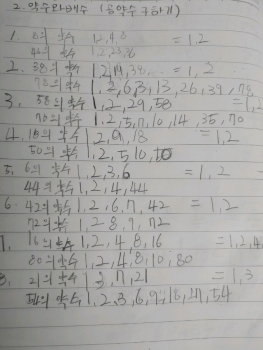 2. 약수와 배수 (공약수 구하기)
1. 8의 약수 1,2,4,8 = 1,2
의 약수 1,2,23,
2. 38의 약수 1,2,19,38 = 1, 2
78의 약수 1,2,6,3,13,26,39,78
3. 58의 약수 1,2,29,58 = 1,2
70의 약수 1,2,5,7,10,14,35,70
4. 18의 약수 1,2,9,18 = 1,2
50의 약수 1,2,5,10,50
5. 6의 약수 1,2,3,6 = 1,2
44의 약수 1,2,4,44
6. 42의 약수 1,2,6,7,42 = 1,2
72의 약수 1,2,8,9,72
16의 약수 1,2,4,8,16 = 1,2,4
80의 약수 1,2,4,8,10,80
21의 약수 1,3,7,21 = 1,3
54의 약수 1,2,3,6,9,18,27,54